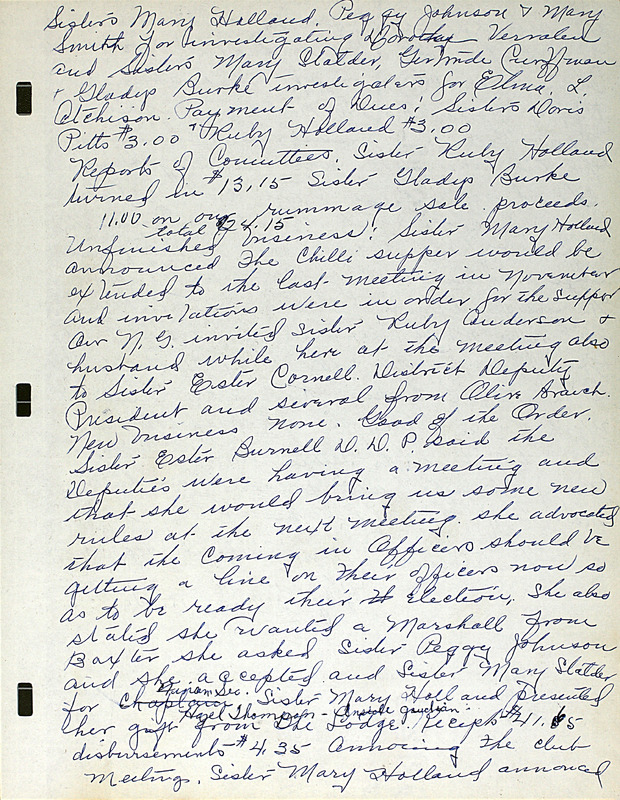 Sisters Mary Holland, Peggy Johnson & Mary
Smith for investigating Dorothy
and Sisters Mary Slatder, Gertrude Curffman
& Gladys Burke investigators for Elma L.
Atchison. Payment of Dues: Sisters Doris
Pitts $3.00 & Ruby Holland $3.00
Reports of Committees. Sister Ruby Holland
turned in $13.15 Sister Gladys Burke
11.00 on our rummage sale proceeds.
total 24.15
Unfinished Business: Sister Mary Holland
announced the Chilli supper would be
extended to the last meeting in November
and invitations were in order for the supper
Our N.G. invited Sister Ruby Anderson &
husband while here at the meeting also
to Sister Ester Cornell. District Deputy
President and several from Olive Branch.
New Business none. Good of the Order.
Sister Ester Burnell D.D.P. said the
Deputies were having a meeting and
that she would bring us some new
rules at the next meeting. she advocated
that the coming in Officers should be
getting a line on their officers now so
as to be ready their Election. She also
stated she wanted a Marshall from
Baxter she asked Sister Peggy Johnson
and she accepted and Sister Mary Slatder
for Sec. Sister Mary Holland presented
Hazel Thompson - Inside Guardian.
her gift from the Lodge. receipts $41.65
disbursements $4.35 the club
Meetings. Sister Mary Holland annonced